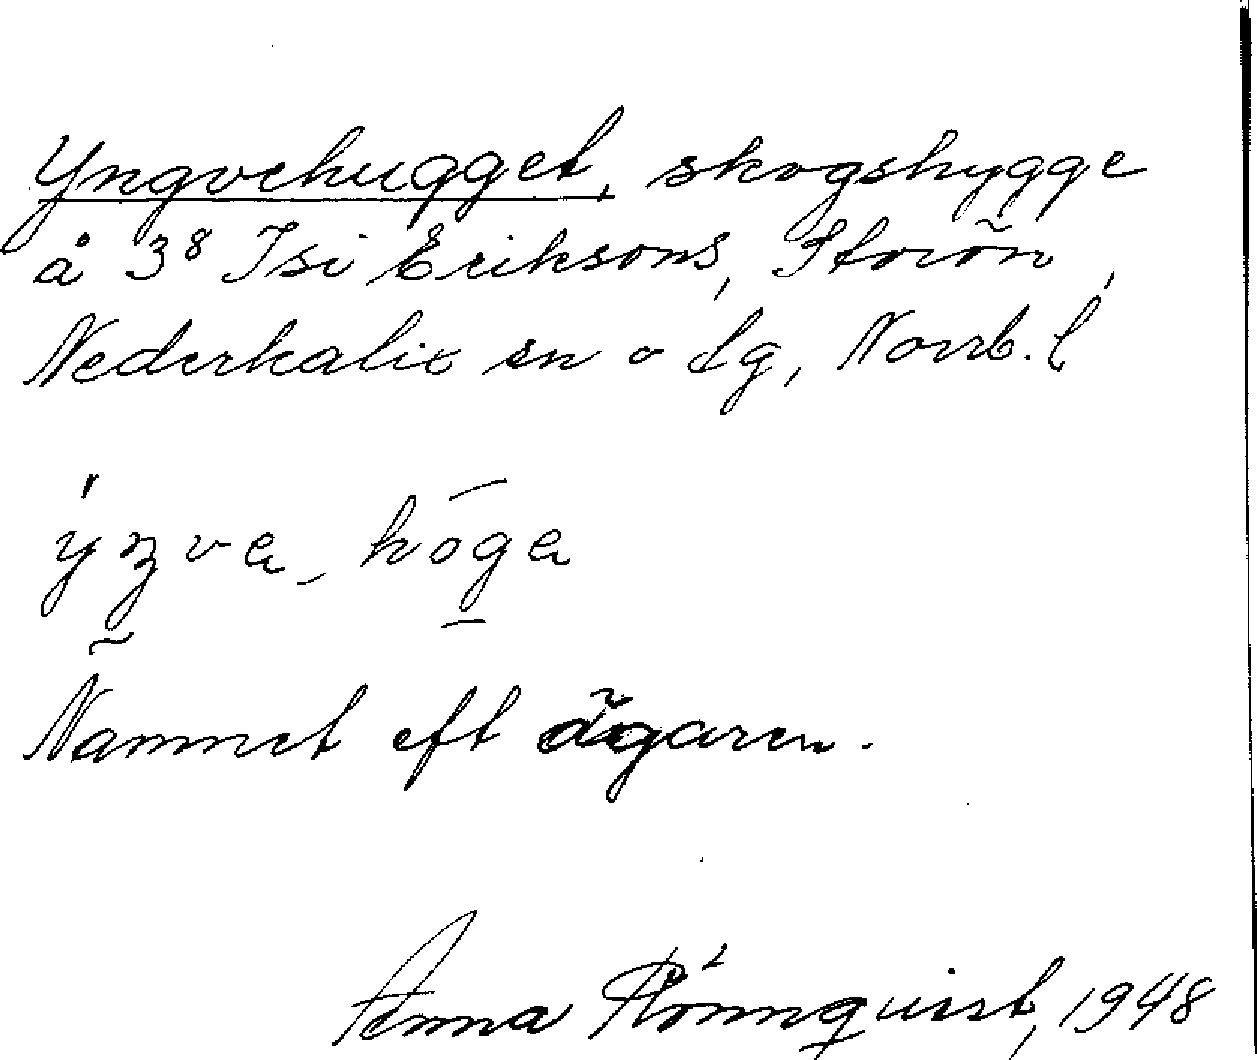 Yngvehugget, skogshygge
å 3⁸ Isi Eriksons, Storön,
Nederkalix sn o dg, Norrb. l
ýŋva - hoga
Namnet eft ägaren.
Anna Rönnquist, 1948